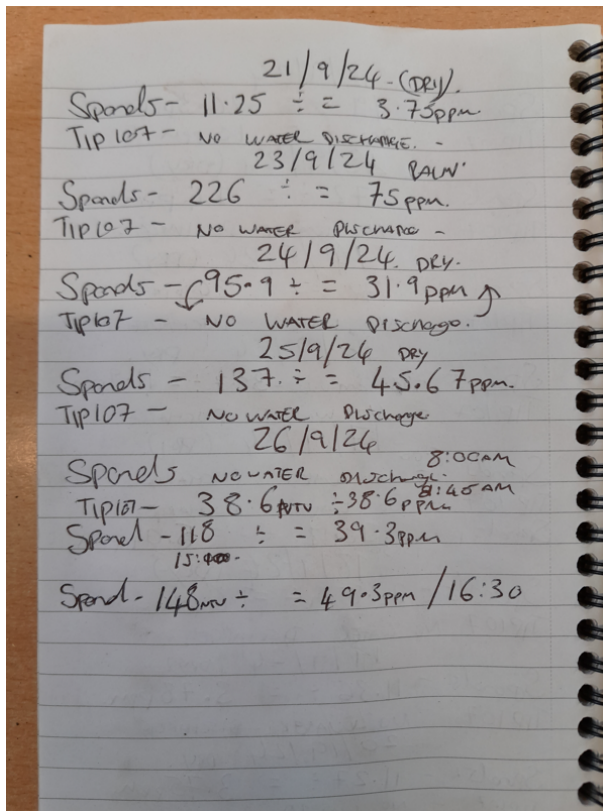 21/9/24 - (DRY).
Sponds - 11.25 ÷ = 3.75ppm
TIP107 - NO WATER DISCHARGE. -
23/9/24 RAIN
Sponds - 226 ÷ = 75ppm.
TIP107 - NO WATER DISCHARGE -
24/9/24. DRY.
Sponds - 95.9 ÷ = 31.9ppm
TIP107 - NO WATER Discharge.
25/9/24 DRY
Sponds - 137. ÷ = 45.67ppm.
TIP107 - NO WATER Discharge
26/9/24
8:00AM
Sponds NO WATER Discharge.
TIP107 - 38.6 NTU ÷ 38.6ppm 8:45AM
Spond - 118 ÷ = 39.3ppm
Spond - 148NTU ÷ = 49.3ppm / 16:30